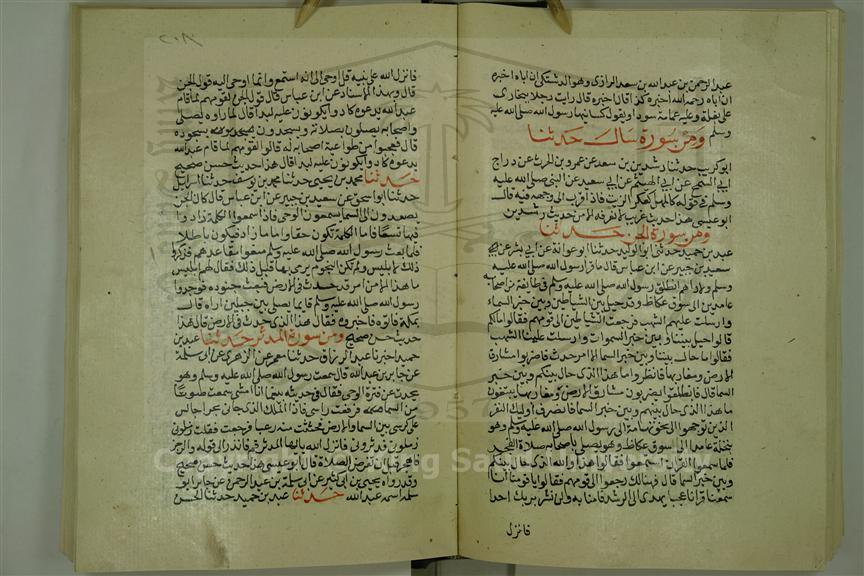 عبد الرحمن بن عبد الله بن سعد الرازى وهو الدشتكى ان اباه اخبره
ان اباه رحمه الله اخبره كذا قال اخبره قال رايت رجلا ببخارى
على بغلة وعليه عمامة سودا ويقول كسانيها رسول الله صلى الله عليه
وسلم ومن سورة سال حدثنا
ابو كريب حدثنا رشدين بن سعد عن عمرو بن الحرث عن دراج
ابى السمح عن ابى الهيثم عن ابى سعيد عن النبى صلى الله عليه
وسلم فى قوله كالمهل كعكر الزيت فاذا قرب الى وجهه فيه قال
ابو عيسى هذا حديث غريب لا نعرفه الا من حديث رشدين
ومن سورة الجن حدثنا
عبد بن حميد حدثنا ابو الوليد حدثنا ابو عوانة عن ابى بشر عن
سعيد بن جبير عن ابن عباس قال ما قرا رسول الله صلى الله عليه
وسلم ولا راهم انطلق رسول الله صلى الله عليه وسلم فى طائفة من اصحابه
عامدين الى سوق عكاظ وقد حيل بين الشياطين وبين خبر السماء
وارسلت عليهم الشهب فرجعت الشياطين الى قومهم فقالوا ما لكم
قالوا حيل بيننا وبين خبر السموات وارسلت علينا الشهب
فقالوا ما حال بيننا وبين خبر السما الا امر حدث فاضربوا مشارق
الارض ومغاربها فانظروا ما هذا الذى حال بينكم وبين خبر
السما قال فانطلقوا يضربون مشارق الارض ومغاربها يبتغون
ما هذا الذى حال بينهم وبين خبر السما فانصرف اوليك النفر
الذين توجهوا الى نحو تهامة الى رسول الله صلى الله عليه وسلم وهو
بنخلة عامدا الى سوق عكاظ وهو يصلى باصحابه صلاة الفجر
فلما سمعوا القران استمعوا له فقالوا هذا والله الذى حال بينكم
وبين خبر السما قال فهنالك رجعوا الى قومهم فقالوا يا قومنا انا
سمعنا قرانا عجبا يهدى الى الرشد فامنا به ولن نشرك بربنا احدا
فانزل
فانزل الله على نبيه قل اوحى الى انه استمع وانما اوحى اليه قول الجن
قال وبهذا الاسناد عن ابن عباس قال قول الجن لقومهم لما قام
عبد الله يدعوه كادوا يكونون عليه لبدا قال لما راوه يصلى
واصحابه يصلون بصلاته ويسجدون بسجوده
قال فعجبوا من طواعية اصحابه له قالوا لقومهم لما قام عبد الله
يدعوه كادوا يكونون عليه لبدا قال هذا حديث حسن صحيح
حدثنا محمد بن يحيى حدثنا محمد بن يوسف حدثنا اسرايل
حدثنا ابو اسحق عن سعيد بن جبير عن ابن عباس قال كان الجن
يصعدون الى السما يسمعون الوحى فاذا سمعوا الكلمة زادوا
فيها تسعا فاما الكلمة تكون حقا واما ما زاد فيكون باطلا
فلما بعث رسول الله صلى الله عليه وسلم منعوا مقاعدهم فذكروا
ذلك لابليس ولم تكن النجوم يرمى بها قبل ذلك فقال لهم ابليس
ما هذا الا من امر قد حدث فى الارض فبعث جنوده فوجدوا
رسول الله صلى الله عليه وسلم قايما يصلى بين جبلين اراه قال
بمكة فلقوه فاخبروه فقال هذا الذى حدث فى الارض قال هذا
حديث حسن صحيح ومن سورة المدثر حدثنا عبد بن
حميد اخبرنا عبد الرزاق حدثنا معمر عن الزهرى عن ابى سلمة
عن جابر بن عبد الله قال سمعت رسول الله صلى الله عليه وسلم وهو
يحدث عن فترة الوحى فقال فى حديثه بينما انا امشى سمعت صوتا
من السما فرفعت راسى فاذا الملك الذى جانى بحرا جالس
على كرسى بين السما والارض فجثثت منه رعبا فرجعت فقلت زملونى
زملونى فدثرونى فانزل الله يا ايها المدثر قم فانذر الى قوله والرجز
فاهجر قبل ان تفرض الصلاة قال ابو عيسى هذا حديث حسن صحيح
وقد رواه يحيى بن ابى كثير عن ابى سلمة بن عبد الرحمن عن جابر ابو
سلمة اسمه عبد الله حدثنا عبد بن حميد حدثنا الحسن